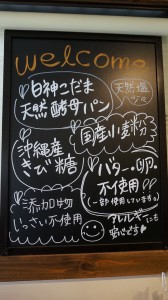 welcome
白神こだま
天然酵母パン
天然塩
国産小麦粉
沖縄産
きび糖
バター・卵
不使用
(一部使用しています)
添加物
いっさい不使用
アレルギーにも
安心です